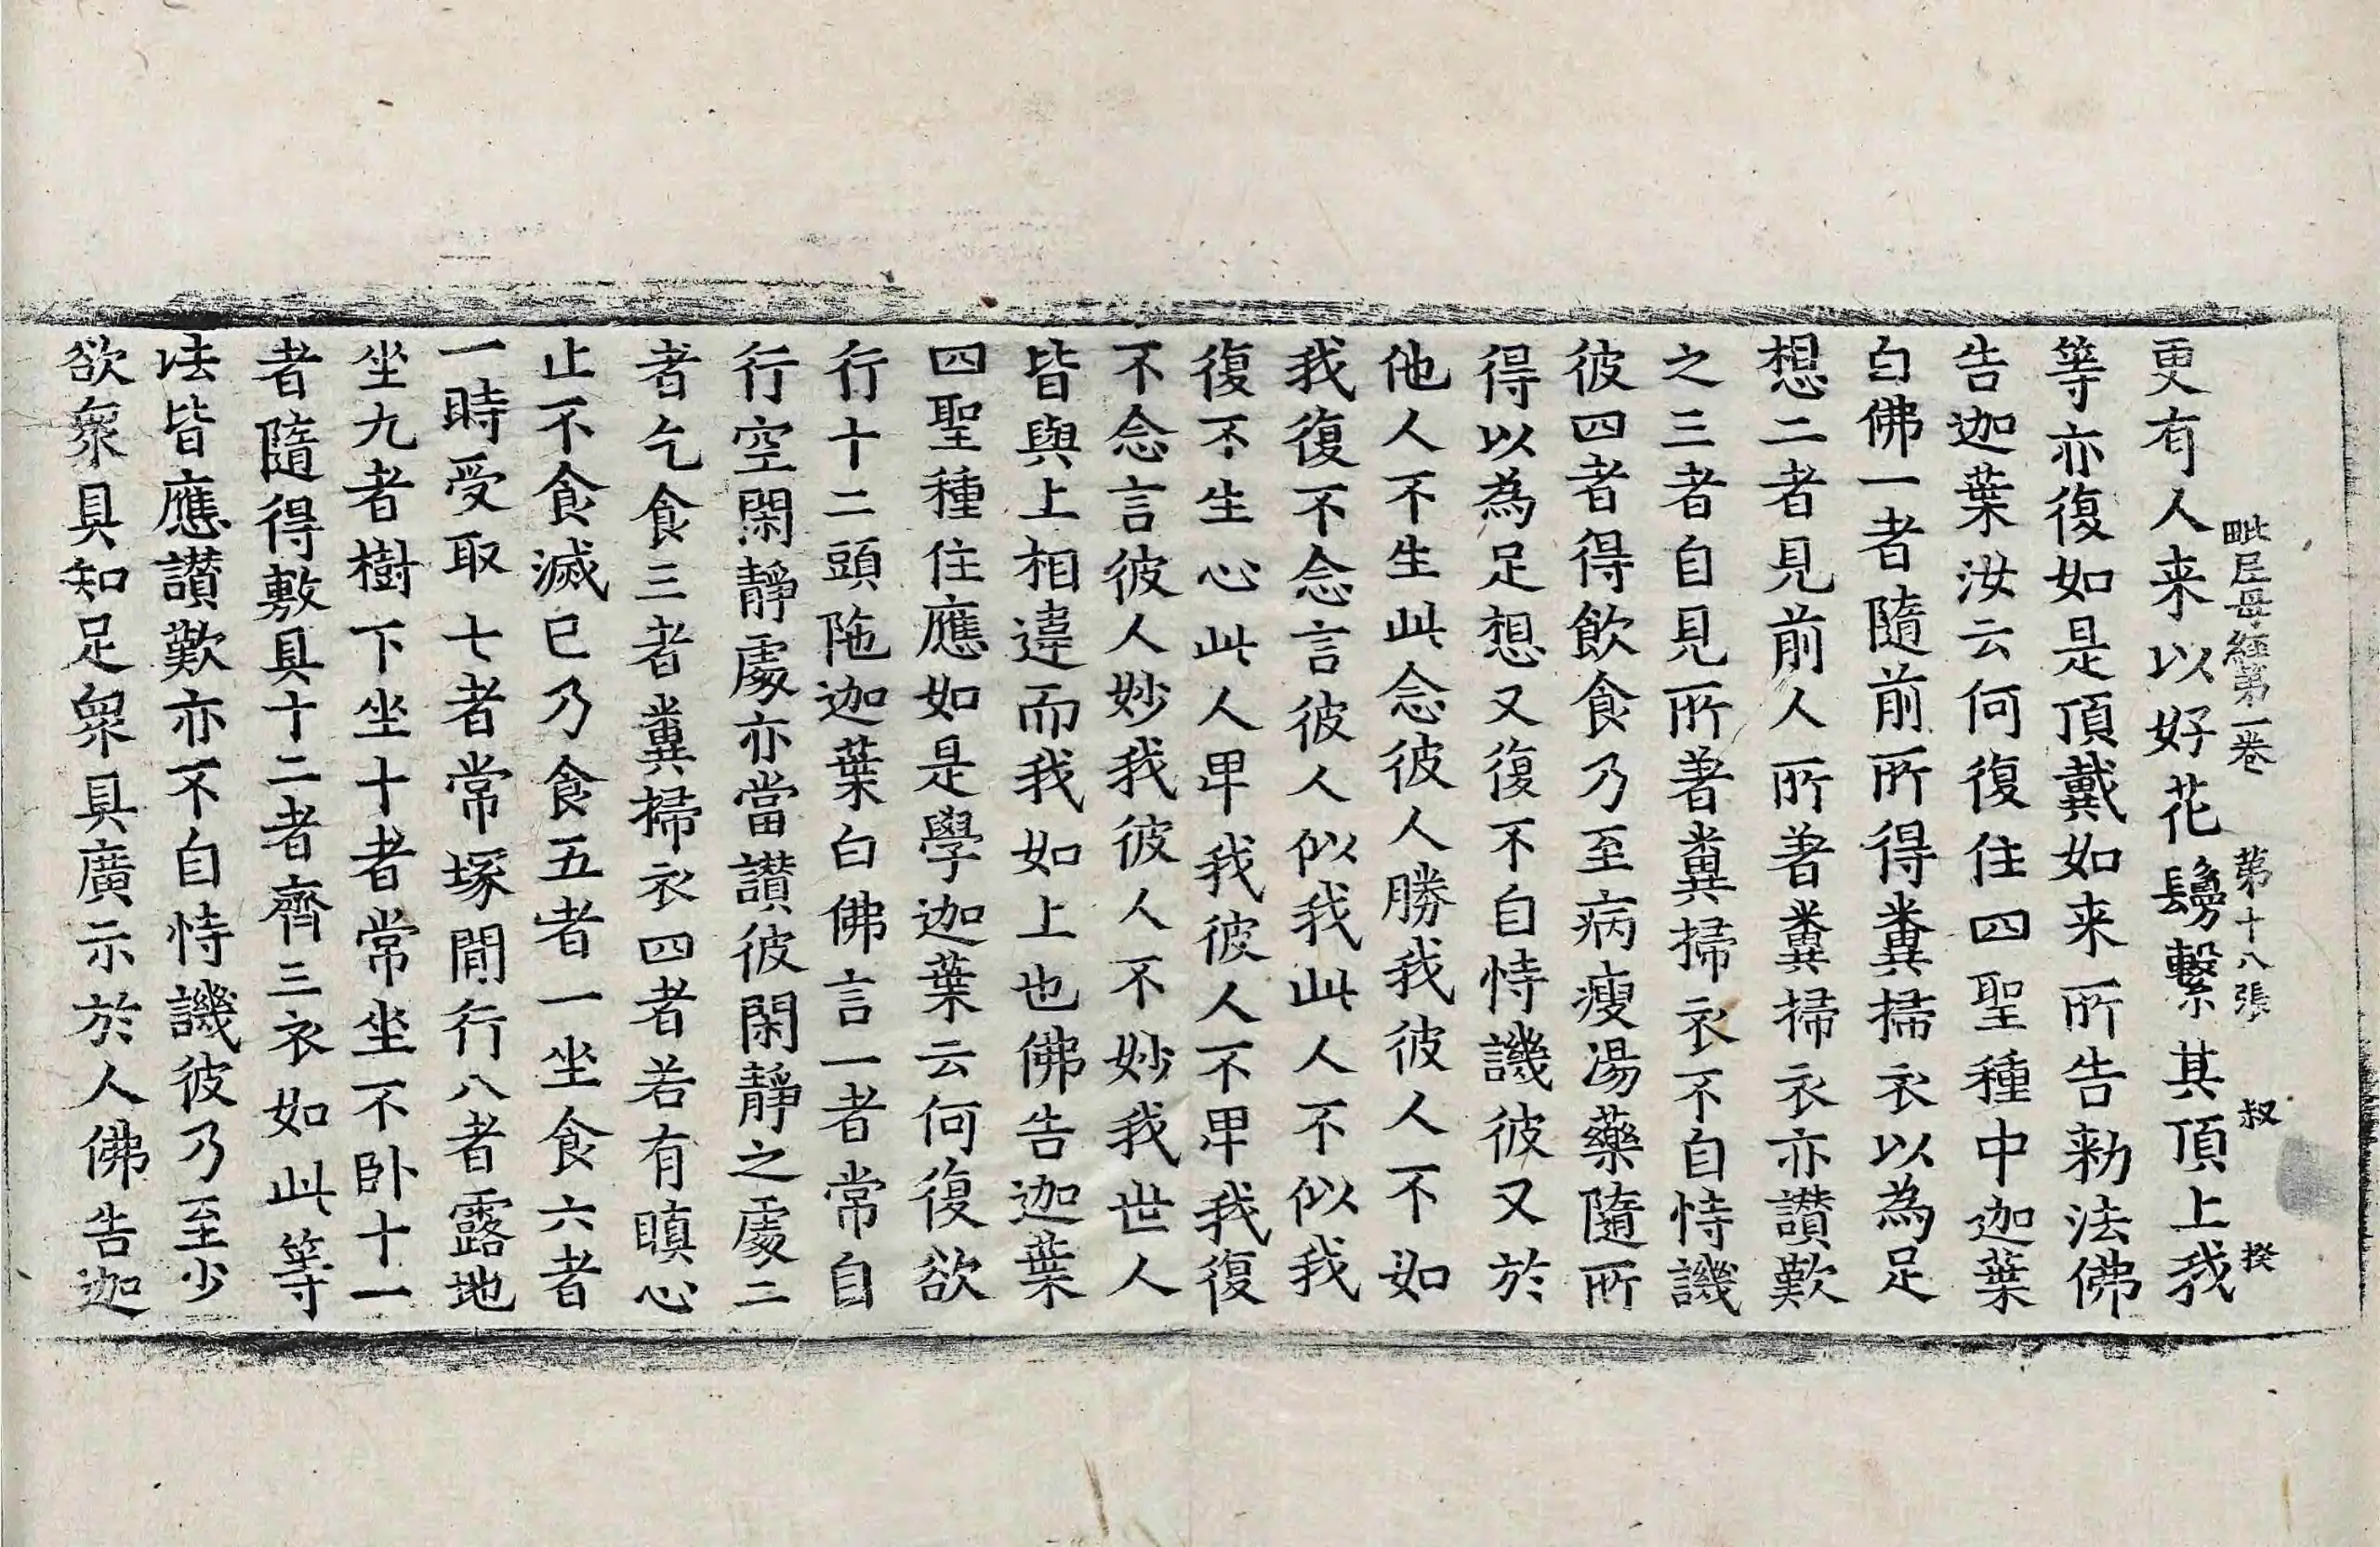 更有人来以好花鬘繫其頂上我
毗尼母經第一卷 第十八張 叔 揆
等亦復如是頂戴如来所告勑法佛
告迦葉汝云何復住四聖種中迦葉
白佛一者隨前所得糞掃衣以為足
想二者見前人所著糞掃衣亦讃歎
之三者自見所著糞掃衣不自恃譏
彼四者得飲食乃至病瘦湯藥隨所
得以為足想又復不自恃譏彼又於
他人不生此念彼人勝我彼人不如
我復不念言彼人似我此人不似我
復不生心此人卑我彼人不卑我復
不念言彼人妙我彼人不妙我世人
皆與上相違而我如上也佛告迦葉
四聖種住應如是學迦葉云何復欲
行十二頭陁迦葉白佛言一者常自
行空閑靜處亦當讃彼閑靜之處二
者乞食三者糞掃衣四者若有瞋心
止不食滅已乃食五者一坐食六者
一時受取七者常塚閒行八者露地
坐九者樹下坐十者常坐不卧十一
者隨得敷具十二者齊三衣如此等
法皆應讃歎亦不自恃譏彼乃至少
欲衆具知足衆具廣示於人佛告迦